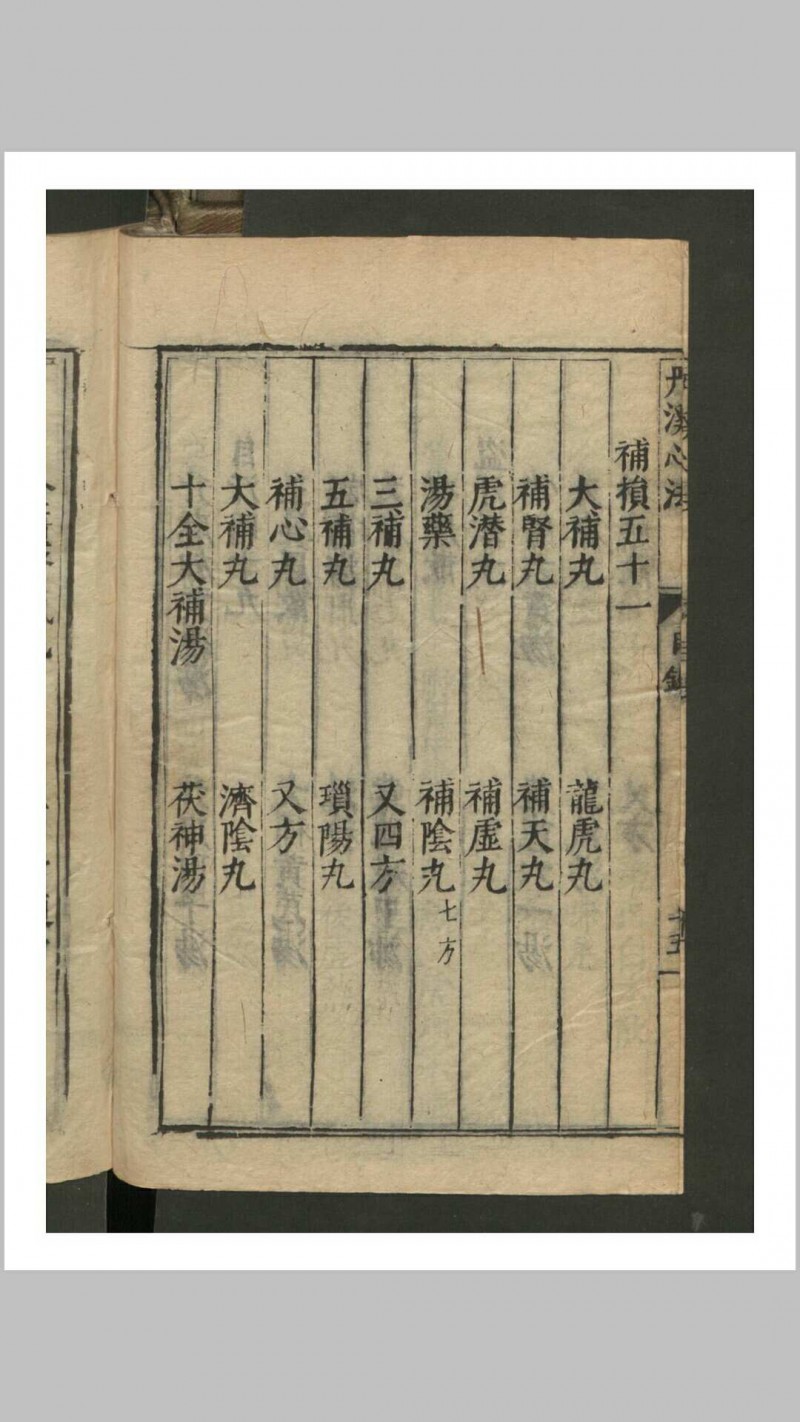 丹溪心法 目錄
補損五十一
大補丸 龍虎丸
補腎丸 補天丸
虎潛丸 補虛丸
湯藥 補陰丸七方
三補丸 又四方
五補丸 瑣陽丸
補心丸 又方
大補丸 濟陰丸
十全大補湯 茯神湯